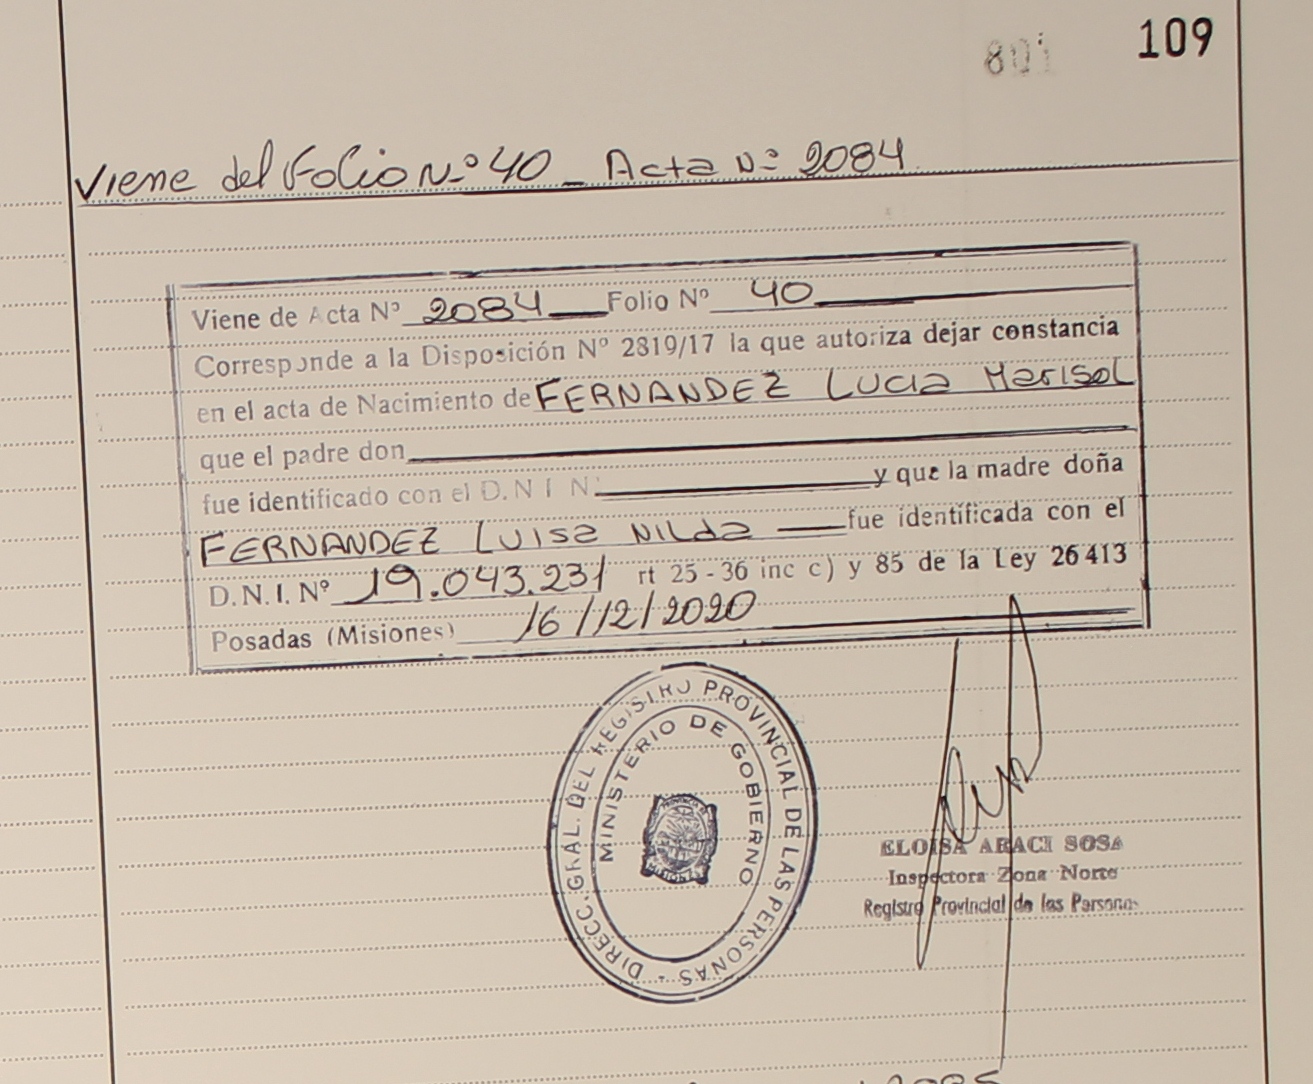 109
Viene del Folio N.º 40 _ Acta Nº 2084
Viene de Acta Nº 2084 Folio Nº 40
Corresponde a la Disposición Nº 2819/17 la que autoriza dejar constancia
en el acta de Nacimiento de FERNANDEZ Lucia Marisol
que el padre don
fue identificado con el D.N I N y que la madre doña
FERNANDEZ Luisa Nilda fue identificada con el
D.N.I. Nº 19.043.231 rt 25-36 inc c) y 85 de la Ley 26413
Posadas (Misiones) 16/12/2020
DIRECC. GRAL. DEL REGISTRO PROVINCIAL DE LAS PERSONAS -
MINISTERIO DE GOBIERNO
MISIONES
ELOISA ARACI SOSA
Inspectora Zona Norte
Registro Provincial de las Personas